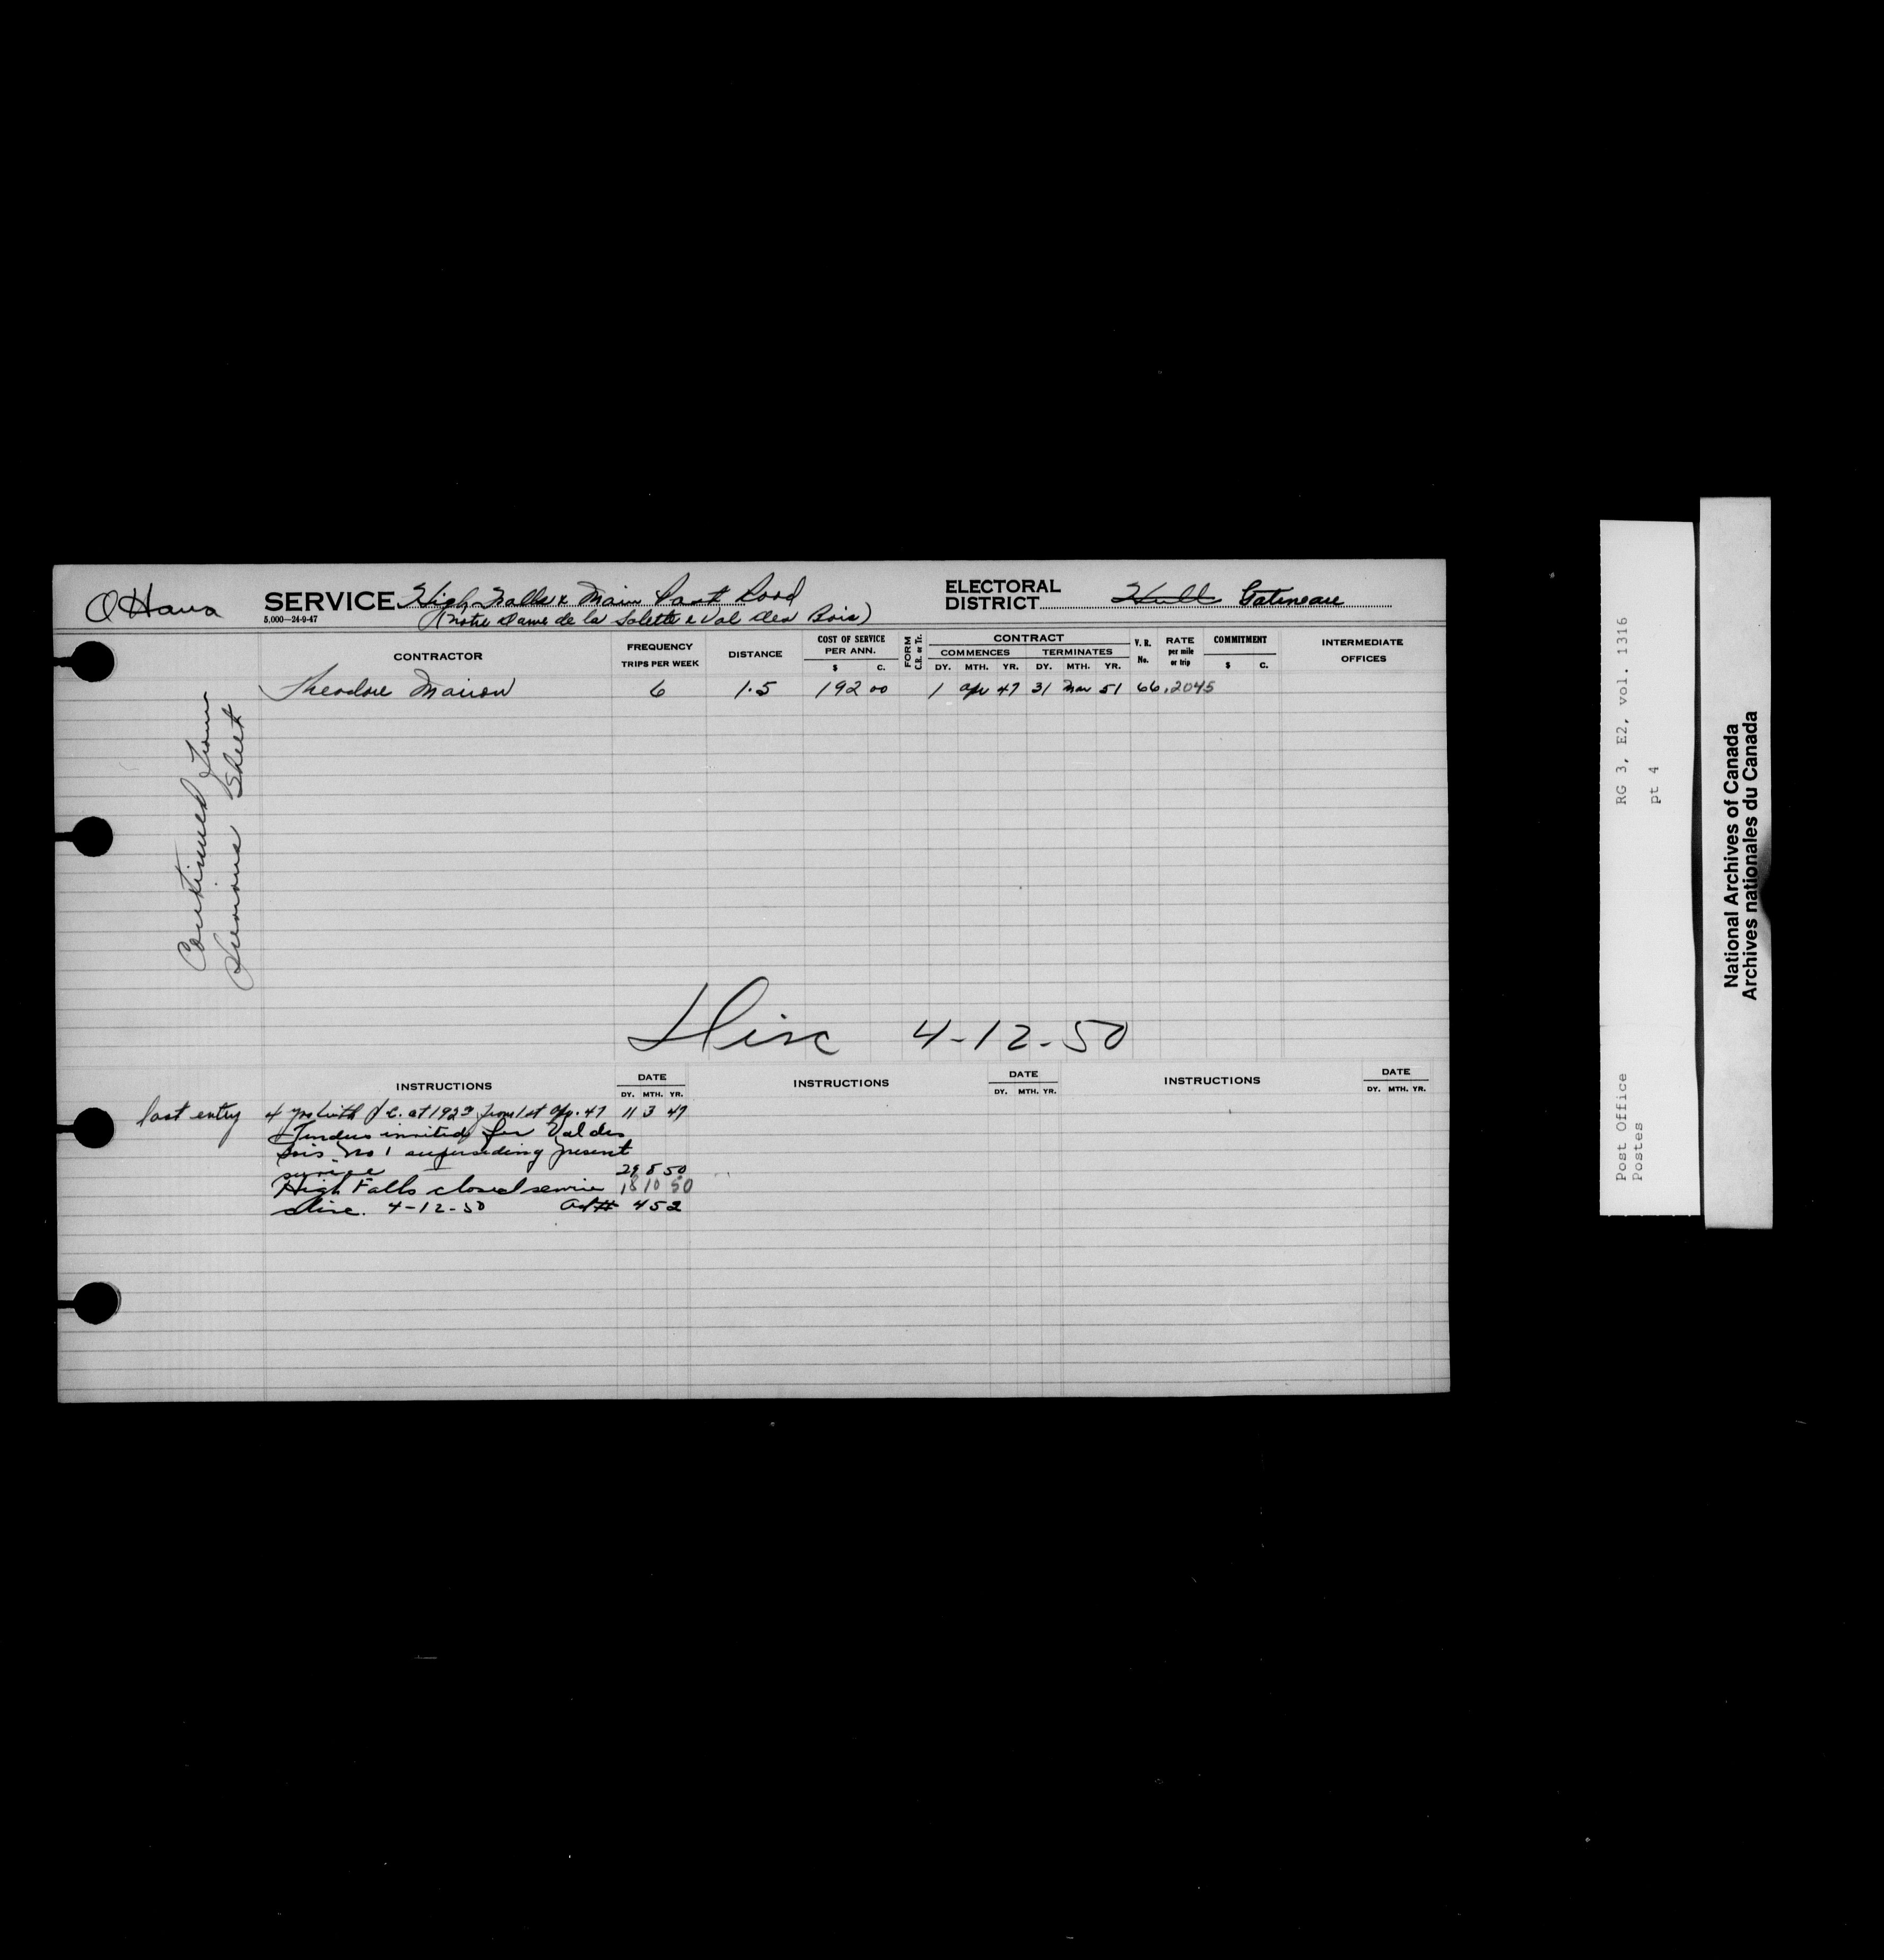 Ottawa
SERVICE High Falls & Main Post Road
5,000—24-9-47
(Notre Dame de la Salette & Val des Bois)
ELECTORAL
DISTRICT Hull Gatineau
CONTRACTOR
FREQUENCY
TRIPS PER WEEK
DISTANCE
COST OF SERVICE
PER ANN.
$ C.
FORM
C.R. or Tr.
CONTRACT
COMMENCES TERMINATES
DY. MTH. YR. DY. MTH. YR.
V. R.
No.
RATE
per mile
or trip
COMMITMENT
$ C.
INTERMEDIATE
OFFICES
Theodore 6 1.5 192 00 1 Apr 47 31 Mar 51 66 .2045
Continued from
Previous Sheet
Disc 4-12-50
INSTRUCTIONS DATE
DY. MTH. YR.
INSTRUCTIONS DATE
DY. MTH. YR.
INSTRUCTIONS DATE
DY. MTH. YR.
last entry
4 yrs with P.C. at 192 from 1st Ap. 47 11 3 47
Tenders invited for Val des
Bois No 1 superseding present
service 29 8 50
High Falls closed service 18 10 50
disc. 4-12-50 452
RG 3, E2, vol. 1316
pt 4
Post Office
Postes
National Archives of Canada
Archives nationales du Canada